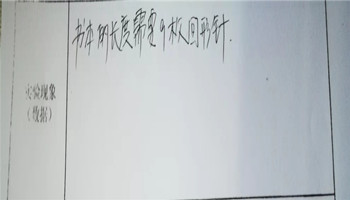 书本的长度需要9枚回形针.
实验现象
(数据)